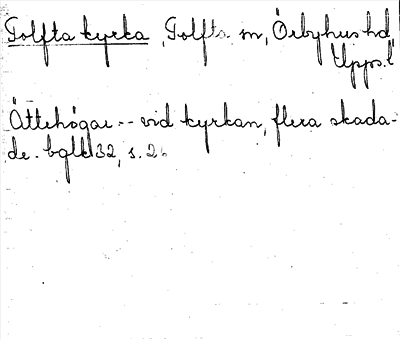 Tolfta kyrka, Tolfta sn, Örbyhus hd
Upps.l
Ättehögar -- vid kyrkan, flera skada-
de. bglk 32, s. 2